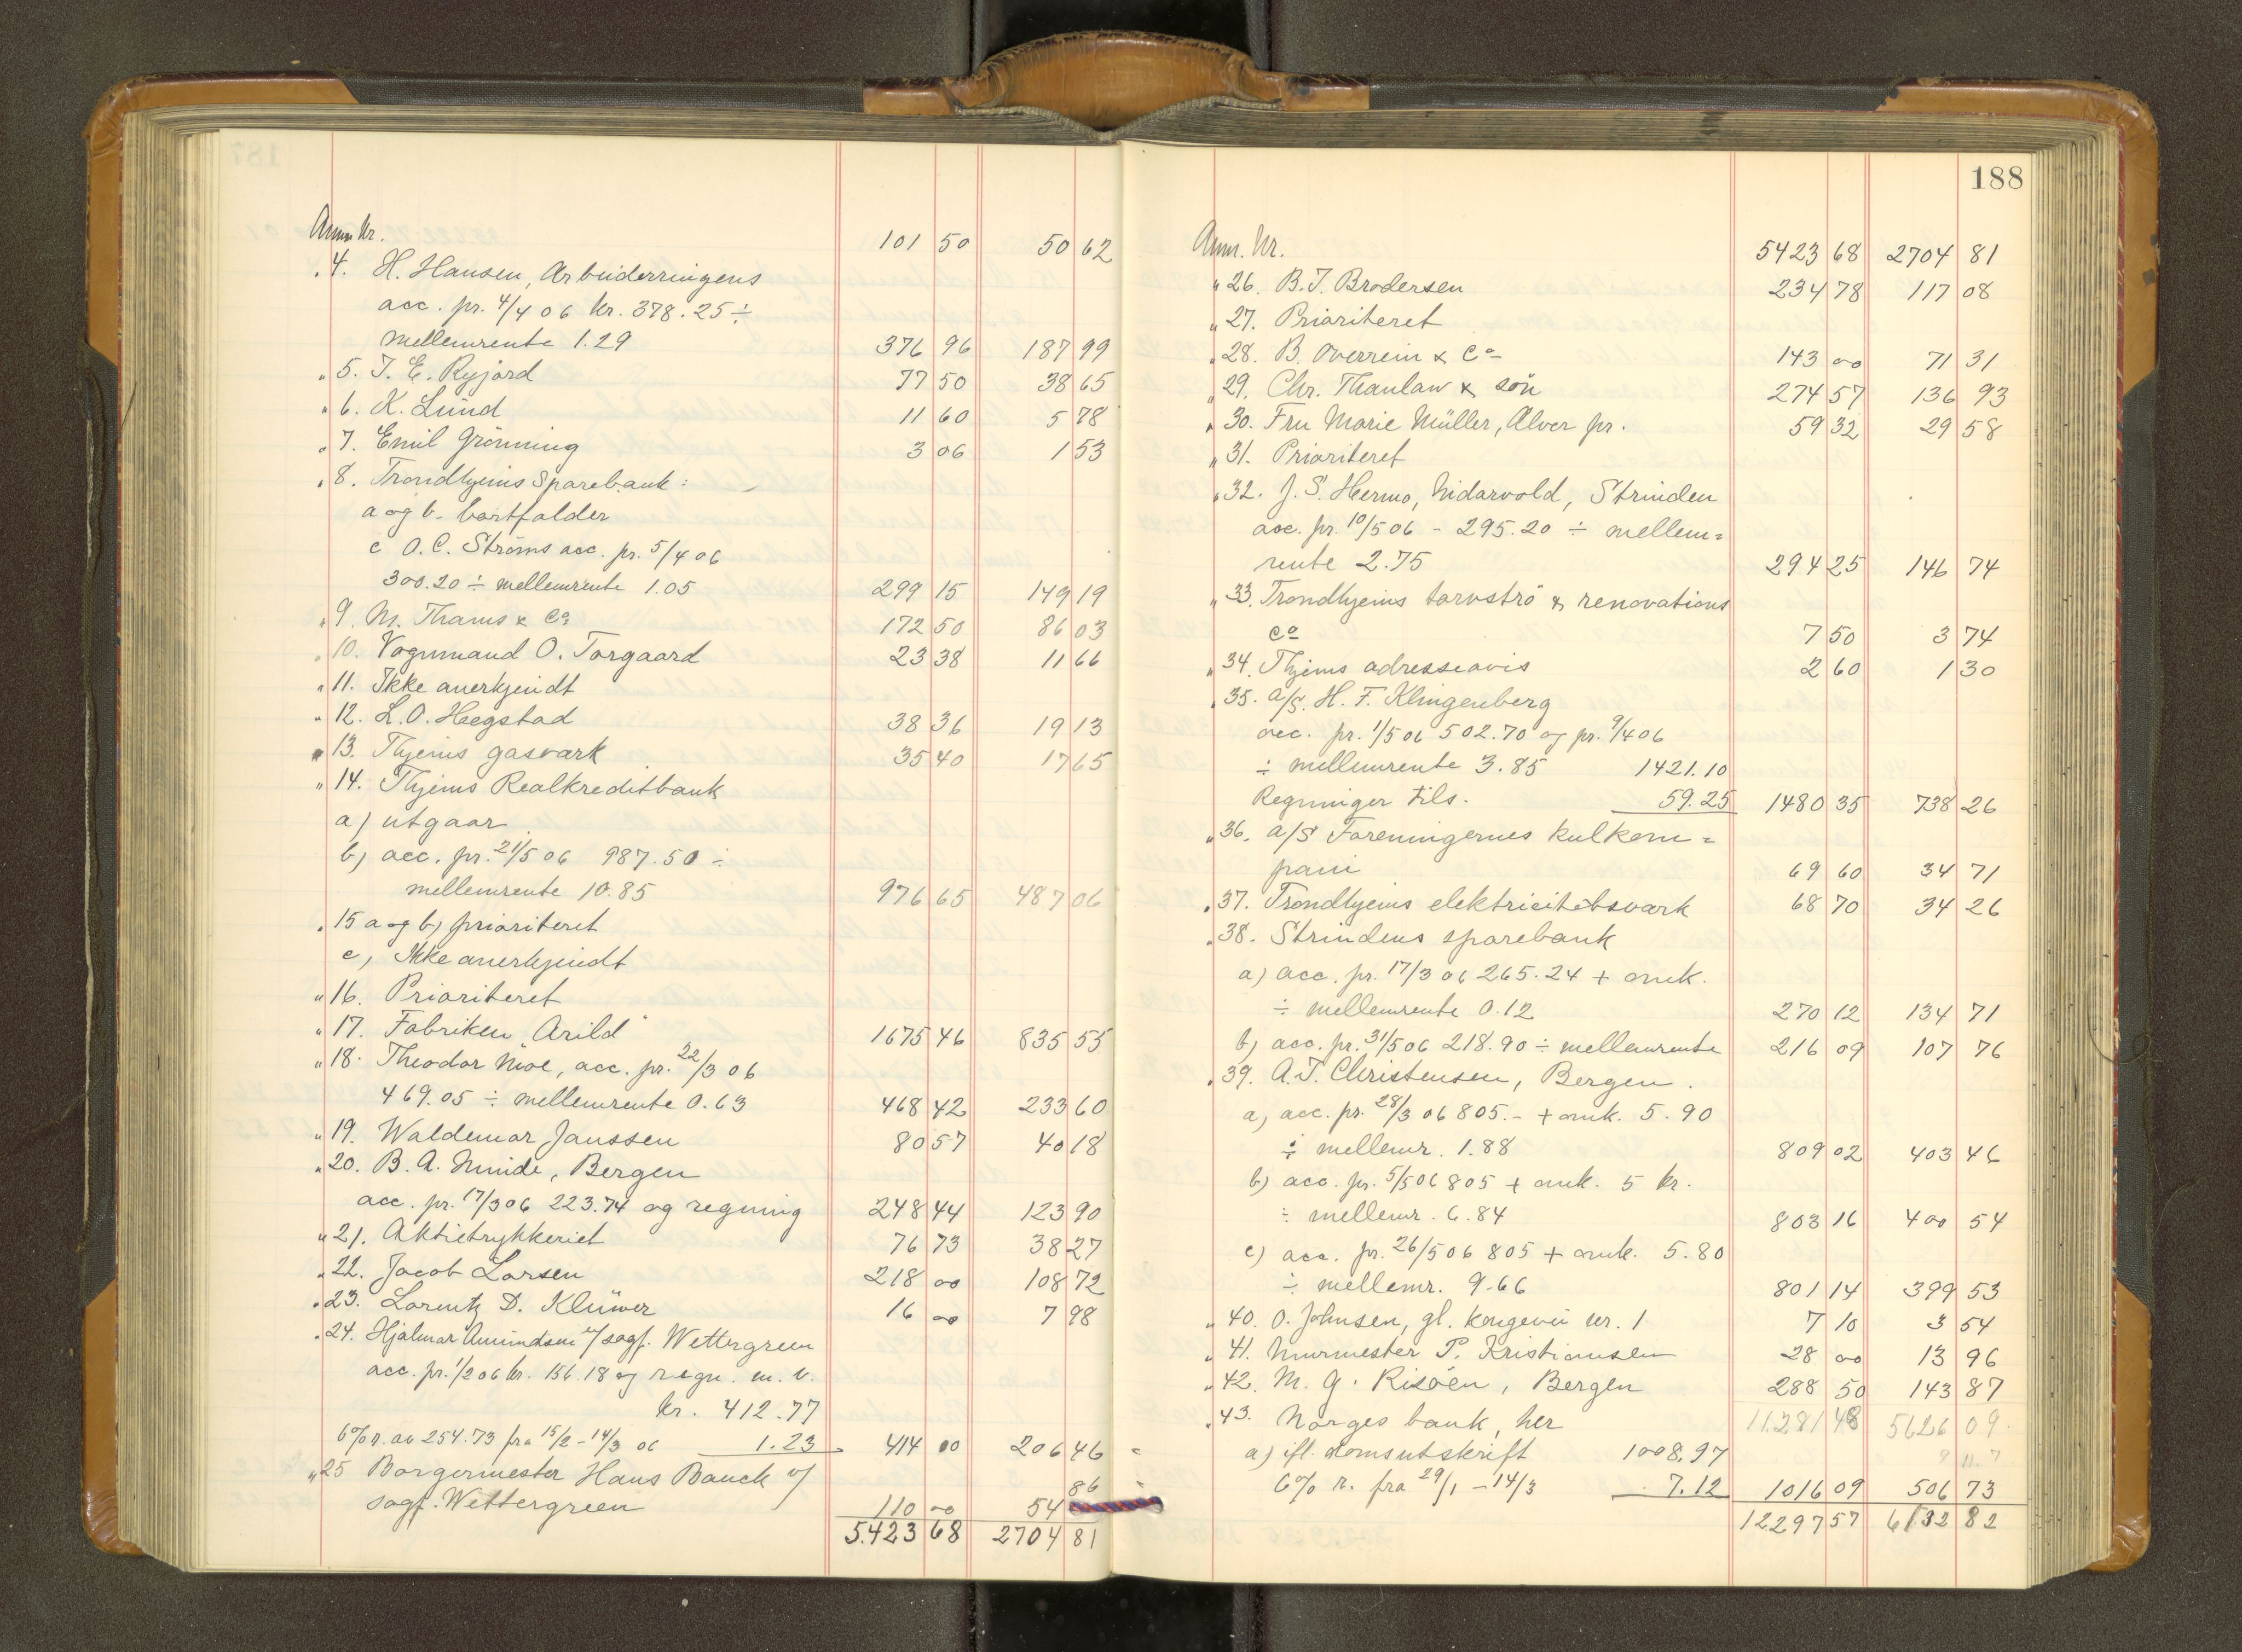 Anm. Nr. 101 50 50 62
" 4. H. Hansen, Arbeiderringens
acc. pr. 4/4 06 kr. 378.25 ÷
mellemrente 1.29 376 96 187 99
" 5. J. E. Ryjord 77 50 38 65
" 6. K. Lund 11 60 5 78
" 7. Emil Grönning 3 06 1 53
" 8. Trondhjems Sparebank:
a og b. bortfalder
c O. C. Ströms acc. pr. 5/4 06
300.20 ÷ mellemrente 1.05 299 15 149 19
" 9. M. Thams & Co 172 50 86 03
" 10. Vognmand O. Torgaard 23 38 11 66
" 11. Ikke anerkjendt
" 12. L. O. Hegstad 38 36 19 13
" 13. Thjems gasvark 35 40 17 65
" 14. Thjems Realkreditbank
a) utgaar
b) acc. pr. 21/5 06 987.50 ÷
mellemrente 10.85 976 65 487 06
" 15 a og b) prioriteret
c) Ikke anerkjendt
" 16. Prioriteret
" 17. Fabriken "Arild" 1675 46 835 55
" 18. Theodor Moe, acc. pr. 22/3 06
469.05 ÷ mellemrente 0.63 468 42 233 60
" 19. Waldemar Janssen 80 57 40 18
" 20. B. A. Minde, Bergen
acc. pr. 17/3 06 223.74 og regning 248 44 123 90
" 21. Aktietrykkeriet 76 73 38 27
" 22. Jacob Larsen 218 00 108 72
" 23. Lorentz D. Klüwer 16 00 7 98
" 24. Hjalmar Amundsen v/ sagf. Wettergreen
acc. pr. 1/2 06 kr. 156.18 og regn. m. v.
kr. 412.77
6% r. av 254.73 fra 15/2 - 14/3 06 1.23 414 00 206 46
" 25 Borgermester Hans Bauck v/
sagf. Wettergreen 110 00 54 86
5.423 68 2704 81
188
Anm. Nr. 5423 68 2704 81
" 26. B. J. Brodersen 234 78 117 08
" 27. Prioriteret
" 28. B. Overrein & Co 143 00 71 31
" 29. Chr. Thaulow & sön 274 57 136 93
" 30. Fru Marie Müller, Alver pr. 59 32 29 58
" 31. Prioriteret
" 32. J. S. Hermo, Nidarvold, Strinden
acc. pr. 10/5 06 - 295.20 ÷ mellem=
rente 2.75 294 25 146 74
" 33. Trondhjems torvströ & renovations
Co 7 50 3 74
" 34. Thjems adresseavis 2 60 1 30
" 35. A/S. H. F. Klingenberg
acc. pr. 1/5 06 502.70 og pr. 9/4 06
÷ mellemrente 3.85 1421.10
Regninger tils. 59.25 1480 35 738 26
" 36. A/S Foreningernes kulkom=
pani 69 60 34 71
" 37. Trondhjems elektricitetsvark 68 70 34 26
" 38. Strindens sparebank
a) acc. pr. 17/3 06 265.24 + omk.
÷ mellemrente 0.12 270 12 134 71
b) acc. pr. 31/5 06 218.90 ÷ mellemrente 216 09 107 76
" 39. A. T. Christensen, Bergen.
a) acc. pr. 28/3 06 805.- + omk. 5.90
÷ mellemr. 1.88 809 02 403 46
b) acc. pr. 5/5 06 805 + omk. 5 kr.
÷ mellemr. 6.84 803 16 400 54
c) acc. pr. 26/5 06 805 + omk. 5.80
÷ mellemr. 9.66 801 14 399 53
" 40. O. Johnsen, gl. kongevei nr. 1 7 10 3 54
" 41. Murmester P. Kristiansen 28 00 13 96
" 42. M. G. Risöen, Bergen 288 50 143 87
" 43. Norges bank, her 11.281 48 5626 09
a) ifl. domsutskrift 1008,97
6% r. fra 29/1 - 14/3 7.12 1016 09 506 73
12297 57 6132 82